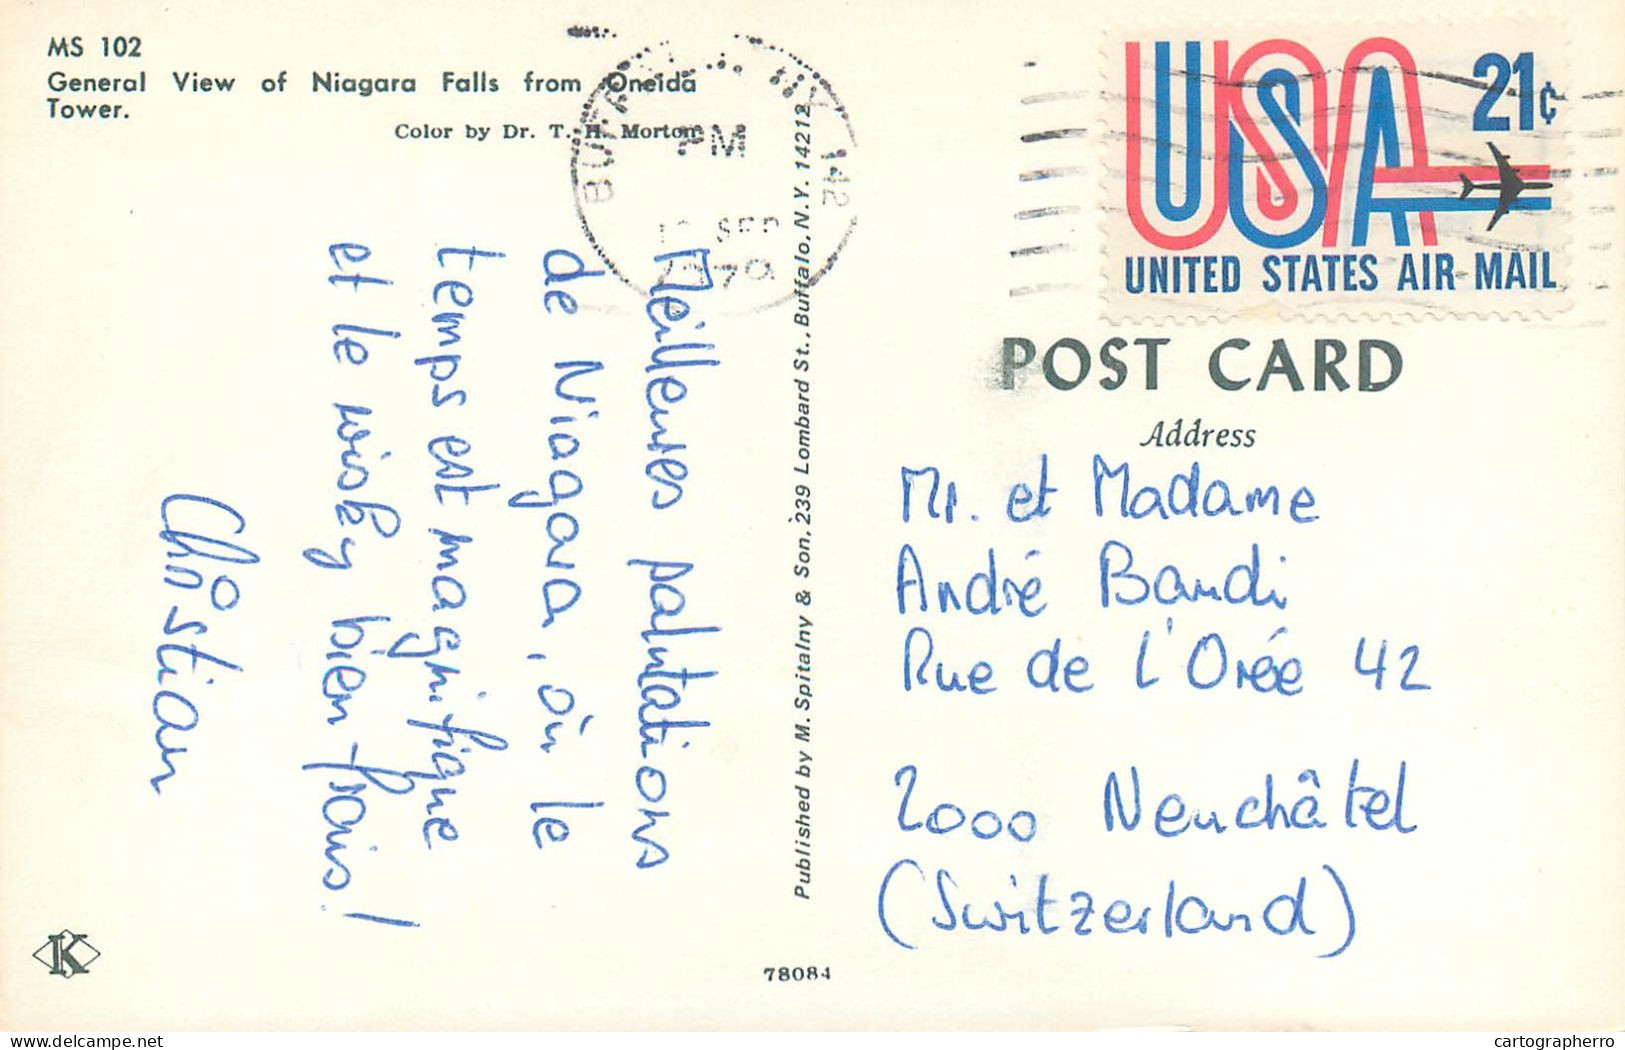 MS 102
General View of Niagara Falls from Oneida
Tower.
Color by Dr. T. H. Morton
BUFFALO, NY 142
PM
SEP
1970
Meilleures salutations
de Niagara, où le
temps est magnifique
et le wisky bien frais!
Christian
Published by M. Spitalny & Son, 239 Lombard St., Buffalo, N.Y. 14212
K
78084
USA 21c
UNITED STATES AIR MAIL
POST CARD
Address
Mr. et Madame
André Bandi
Rue de l'Orée 42
2000 Neuchâtel
(Switzerland)
delcampe.net
cartographerro